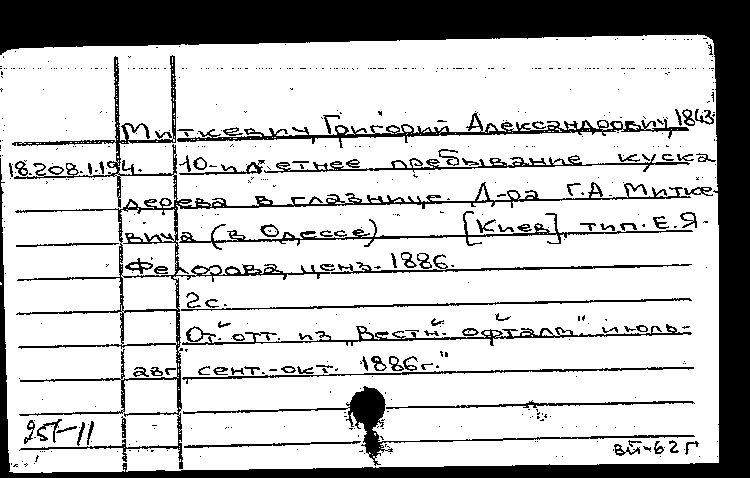 Миткевич, Григорий Александрович, 1843-
18.208.1.194. 10-и летнее пребывание куска
дерева в глазнице. Д-ра Г.А. Митке-
вича (в Одессе). [Киев], тип. Е.Я.
Федорова, ценз. 1886.
2с.
"От. отт. из „Вестн. офталм" июль-
авг. сент.-окт. 1886г."
251-11
вй-62г